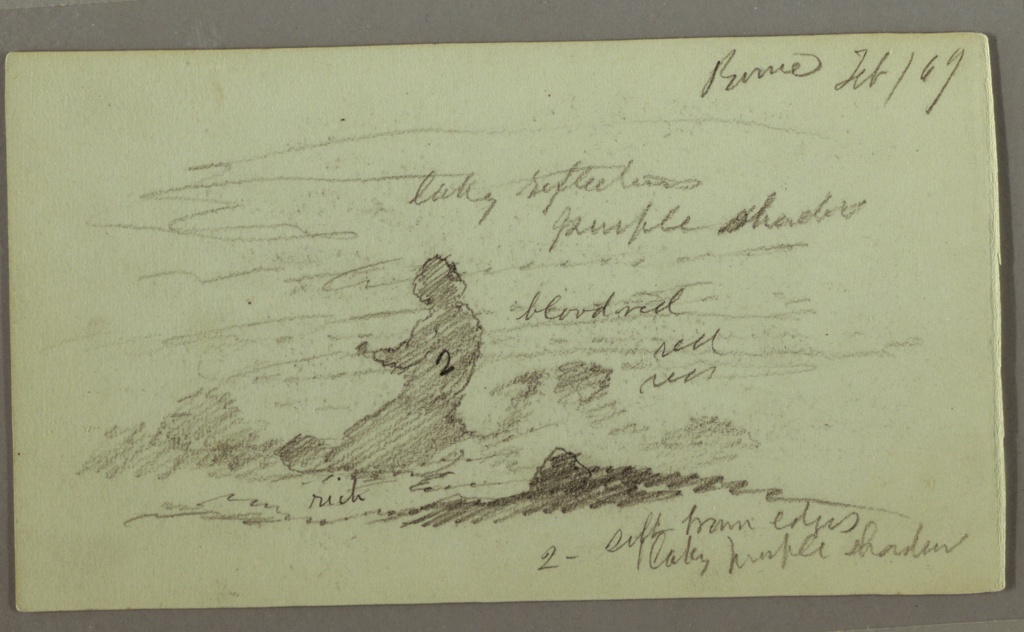 Rome Feb / 69
laky reflections
purple shadow
blood red
red
red
2
rich
2 - soft edges
laky purple shadow